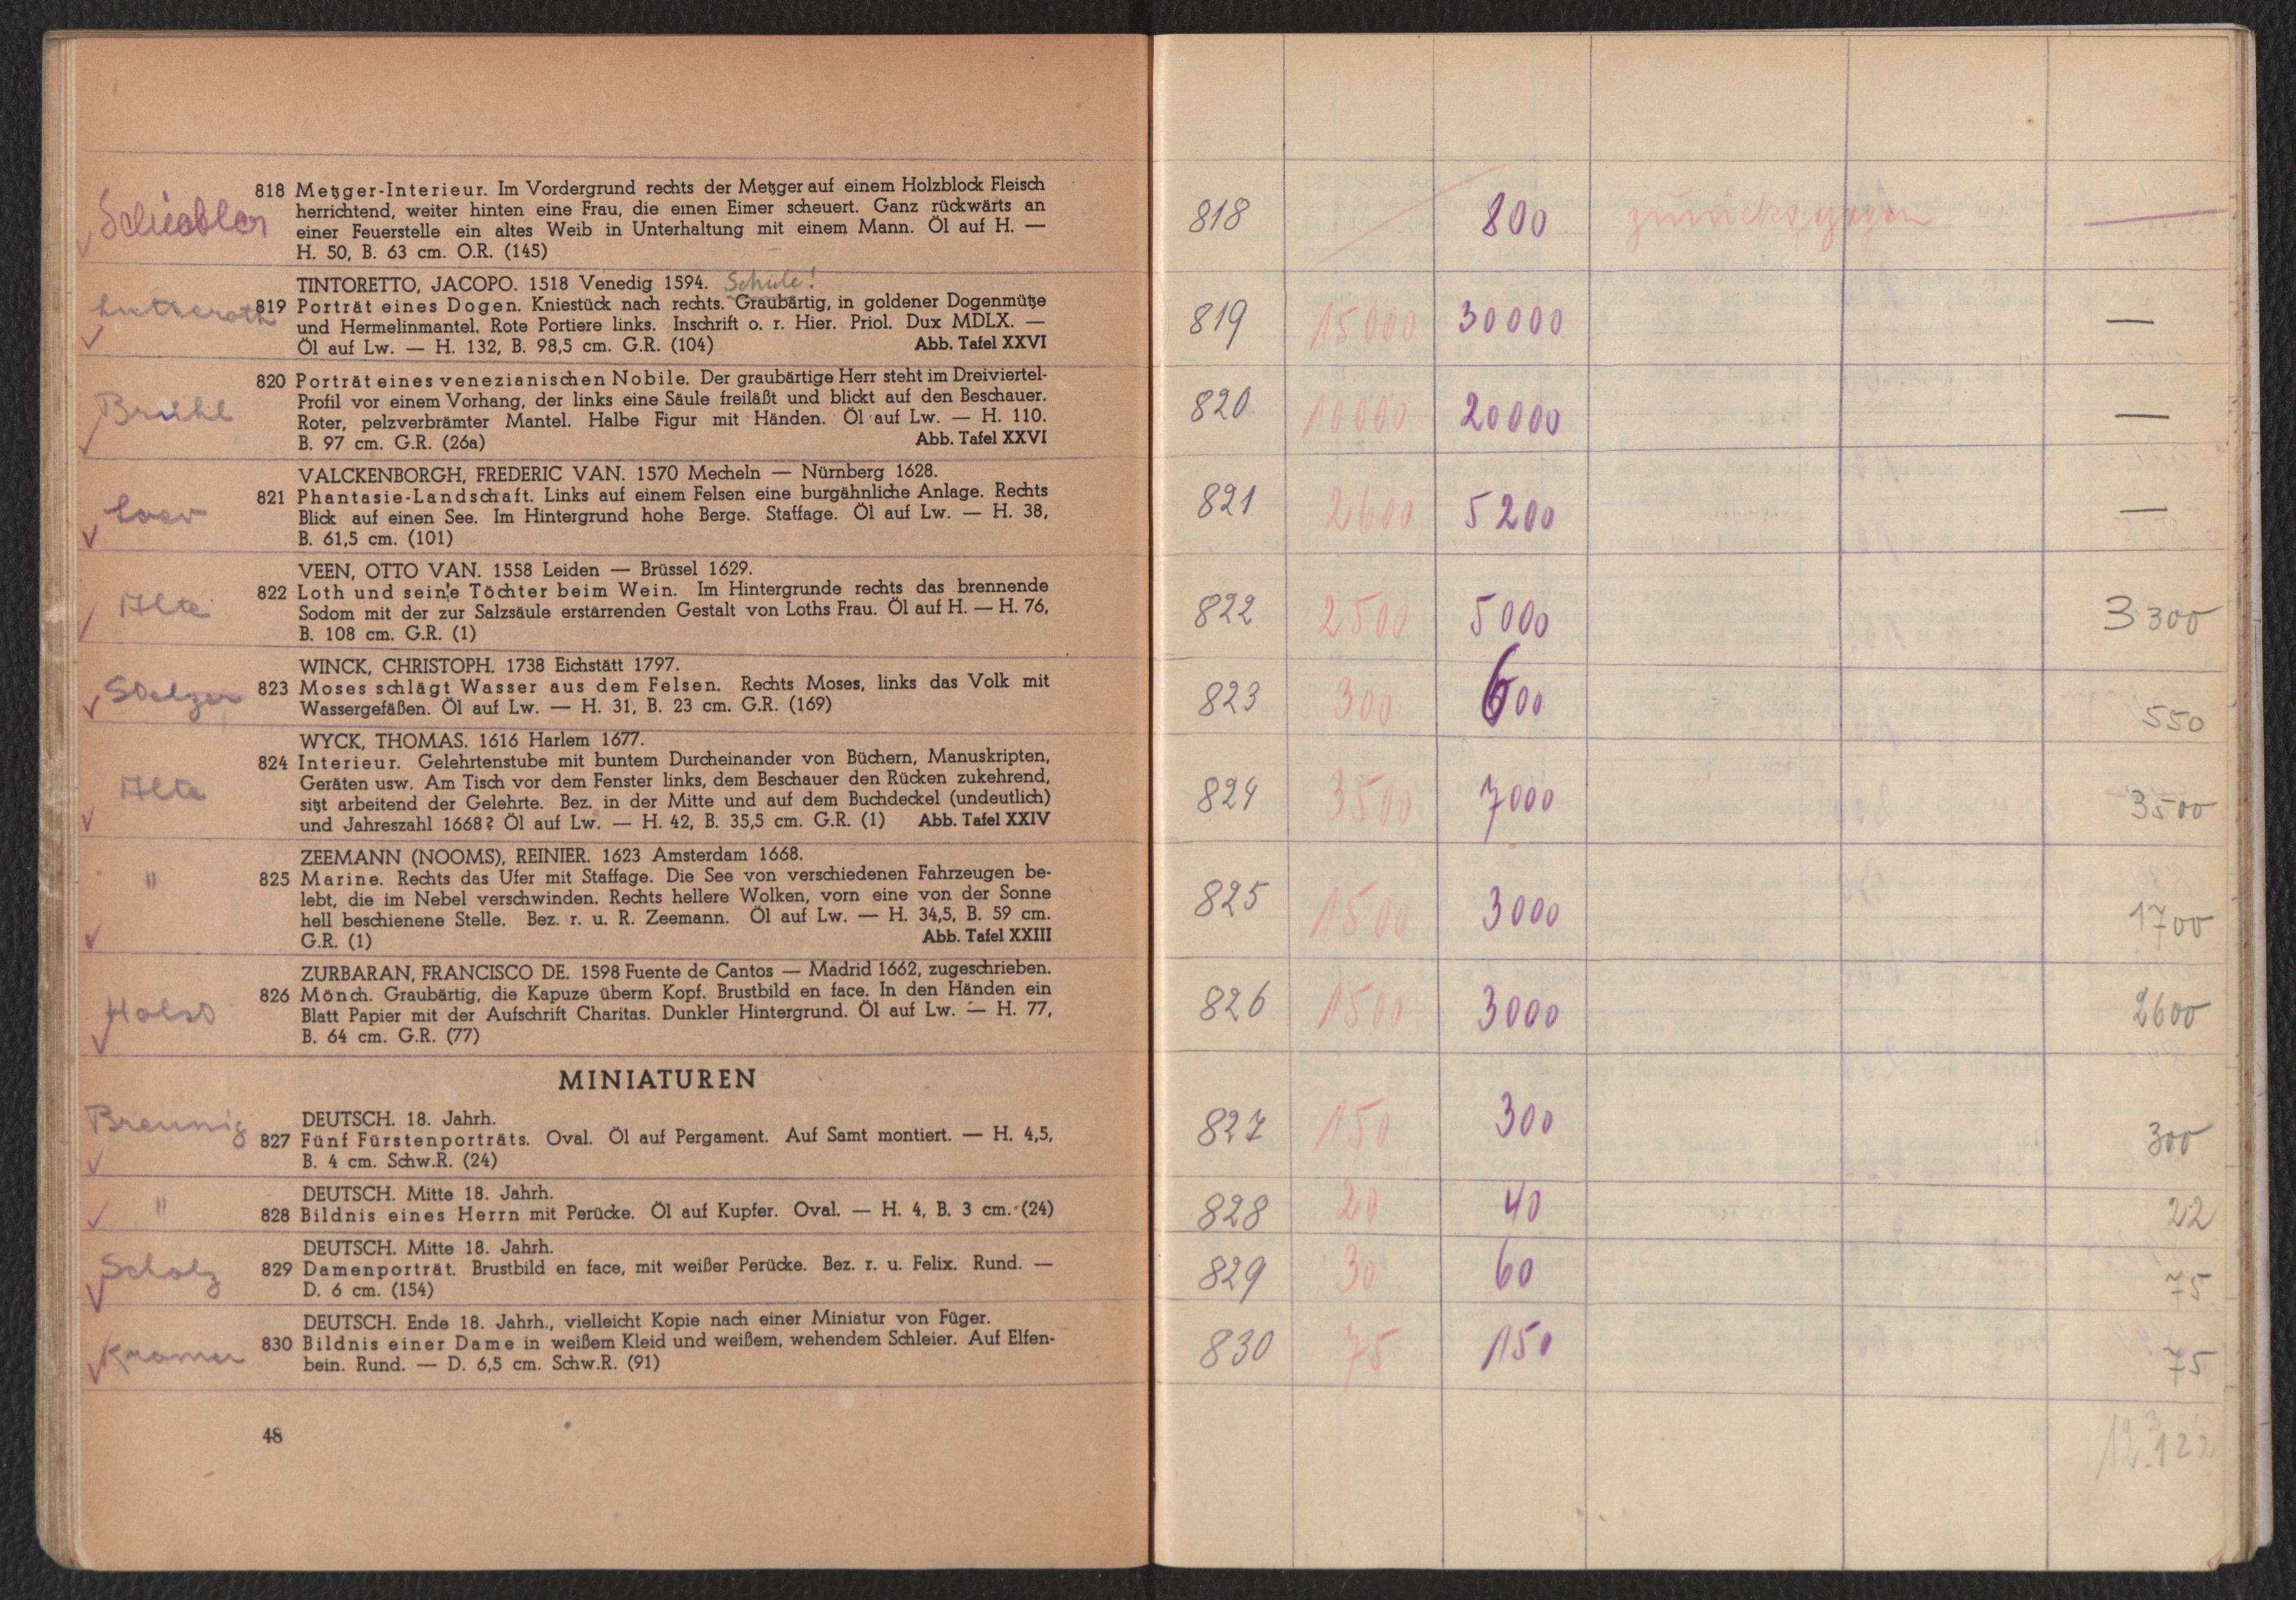 818 Metzger-Interieur. Im Vordergrund rechts der Metzger auf einem Holzblock Fleisch
herrichtend, weiter hinten eine Frau, die einen Eimer scheuert. Ganz rückwärts an
einer Feuerstelle ein altes Weib in Unterhaltung mit einem Mann. Öl auf H. —
H. 50, B. 63 cm. O.R. (145)
TINTORETTO, JACOPO. 1518 Venedig 1594. Schule!
819 Porträt eines Dogen. Kniestück nach rechts. Graubärtig, in goldener Dogenmütze
und Hermelinmantel. Rote Portiere links. Inschrift o. r. Hier. Priol. Dux MDLX. —
Öl auf Lw. — H. 132, B. 98,5 cm. G.R. (104) Abb. Tafel XXVI
Brühl
820 Porträt eines venezianischen Nobile. Der graubärtige Herr steht im Dreiviertel-
Profil vor einem Vorhang, der links eine Säule freiläßt und blickt auf den Beschauer.
Roter, pelzverbrämter Mantel. Halbe Figur mit Händen. Öl auf Lw. — H. 110.
B. 97 cm. G.R. (26a) Abb. Tafel XXVI
VALCKENBORGH, FREDERIC VAN. 1570 Mecheln — Nürnberg 1628.
821 Phantasie-Landschaft. Links auf einem Felsen eine burgähnliche Anlage. Rechts
Blick auf einen See. Im Hintergrund hohe Berge. Staffage. Öl auf Lw. — H. 38,
B. 61,5 cm. (101)
VEEN, OTTO VAN. 1558 Leiden — Brüssel 1629.
822 Loth und seine Töchter beim Wein. Im Hintergrunde rechts das brennende
Sodom mit der zur Salzsäule erstarrenden Gestalt von Loths Frau. Öl auf H. — H. 76,
B. 108 cm. G.R. (1)
WINCK, CHRISTOPH. 1738 Eichstätt 1797.
823 Moses schlägt Wasser aus dem Felsen. Rechts Moses, links das Volk mit
Wassergefäßen. Öl auf Lw. — H. 31, B. 23 cm. G.R. (169)
WYCK, THOMAS. 1616 Harlem 1677.
824 Interieur. Gelehrtenstube mit buntem Durcheinander von Büchern, Manuskripten,
Geräten usw. Am Tisch vor dem Fenster links, dem Beschauer den Rücken zukehrend,
sitzt arbeitend der Gelehrte. Bez. in der Mitte und auf dem Buchdeckel (undeutlich)
und Jahreszahl 1668? Öl auf Lw. — H. 42, B. 35,5 cm. G.R. (1) Abb. Tafel XXIV
ZEEMANN (NOOMS), REINIER. 1623 Amsterdam 1668.
" 825 Marine. Rechts das Ufer mit Staffage. Die See von verschiedenen Fahrzeugen be-
lebt, die im Nebel verschwinden. Rechts hellere Wolken, vorn eine von der Sonne
hell beschienene Stelle. Bez. r. u. R. Zeemann. Öl auf Lw. — H. 34,5, B. 59 cm.
G.R. (1) Abb. Tafel XXIII
ZURBARAN, FRANCISCO DE. 1598 Fuente de Cantos — Madrid 1662, zugeschrieben.
826 Mönch. Graubärtig, die Kapuze überm Kopf. Brustbild en face. In den Händen ein
Blatt Papier mit der Aufschrift Charitas. Dunkler Hintergrund. Öl auf Lw. — H. 77,
B. 64 cm. G.R. (77)
MINIATUREN
Brennig
DEUTSCH. 18. Jahrh.
827 Fünf Fürstenporträts. Oval. Öl auf Pergament. Auf Samt montiert. — H. 4,5,
B. 4 cm. Schw.R. (24)
DEUTSCH. Mitte 18. Jahrh.
" 828 Bildnis eines Herrn mit Perücke. Öl auf Kupfer. Oval. — H. 4, B. 3 cm. (24)
DEUTSCH. Mitte 18. Jahrh.
Scholz
829 Damenporträt. Brustbild en face, mit weißer Perücke. Bez. r. u. Felix. Rund. —
D. 6 cm. (154)
DEUTSCH. Ende 18. Jahrh., vielleicht Kopie nach einer Miniatur von Füger.
Kramer
830 Bildnis einer Dame in weißem Kleid und weißem, wehendem Schleier. Auf Elfen-
bein. Rund. — D. 6,5 cm. Schw.R. (91)
48
818 800 zurückgezogen —
819 15000 30000 —
820 10000 20000 —
821 2600 5200 —
822 2500 5000 3300
823 300 600 550
824 3500 7000 3500
825 1500 3000 1700
826 1500 3000 2600
827 150 300 300
828 20 40 22
829 30 60 75
830 75 150 75